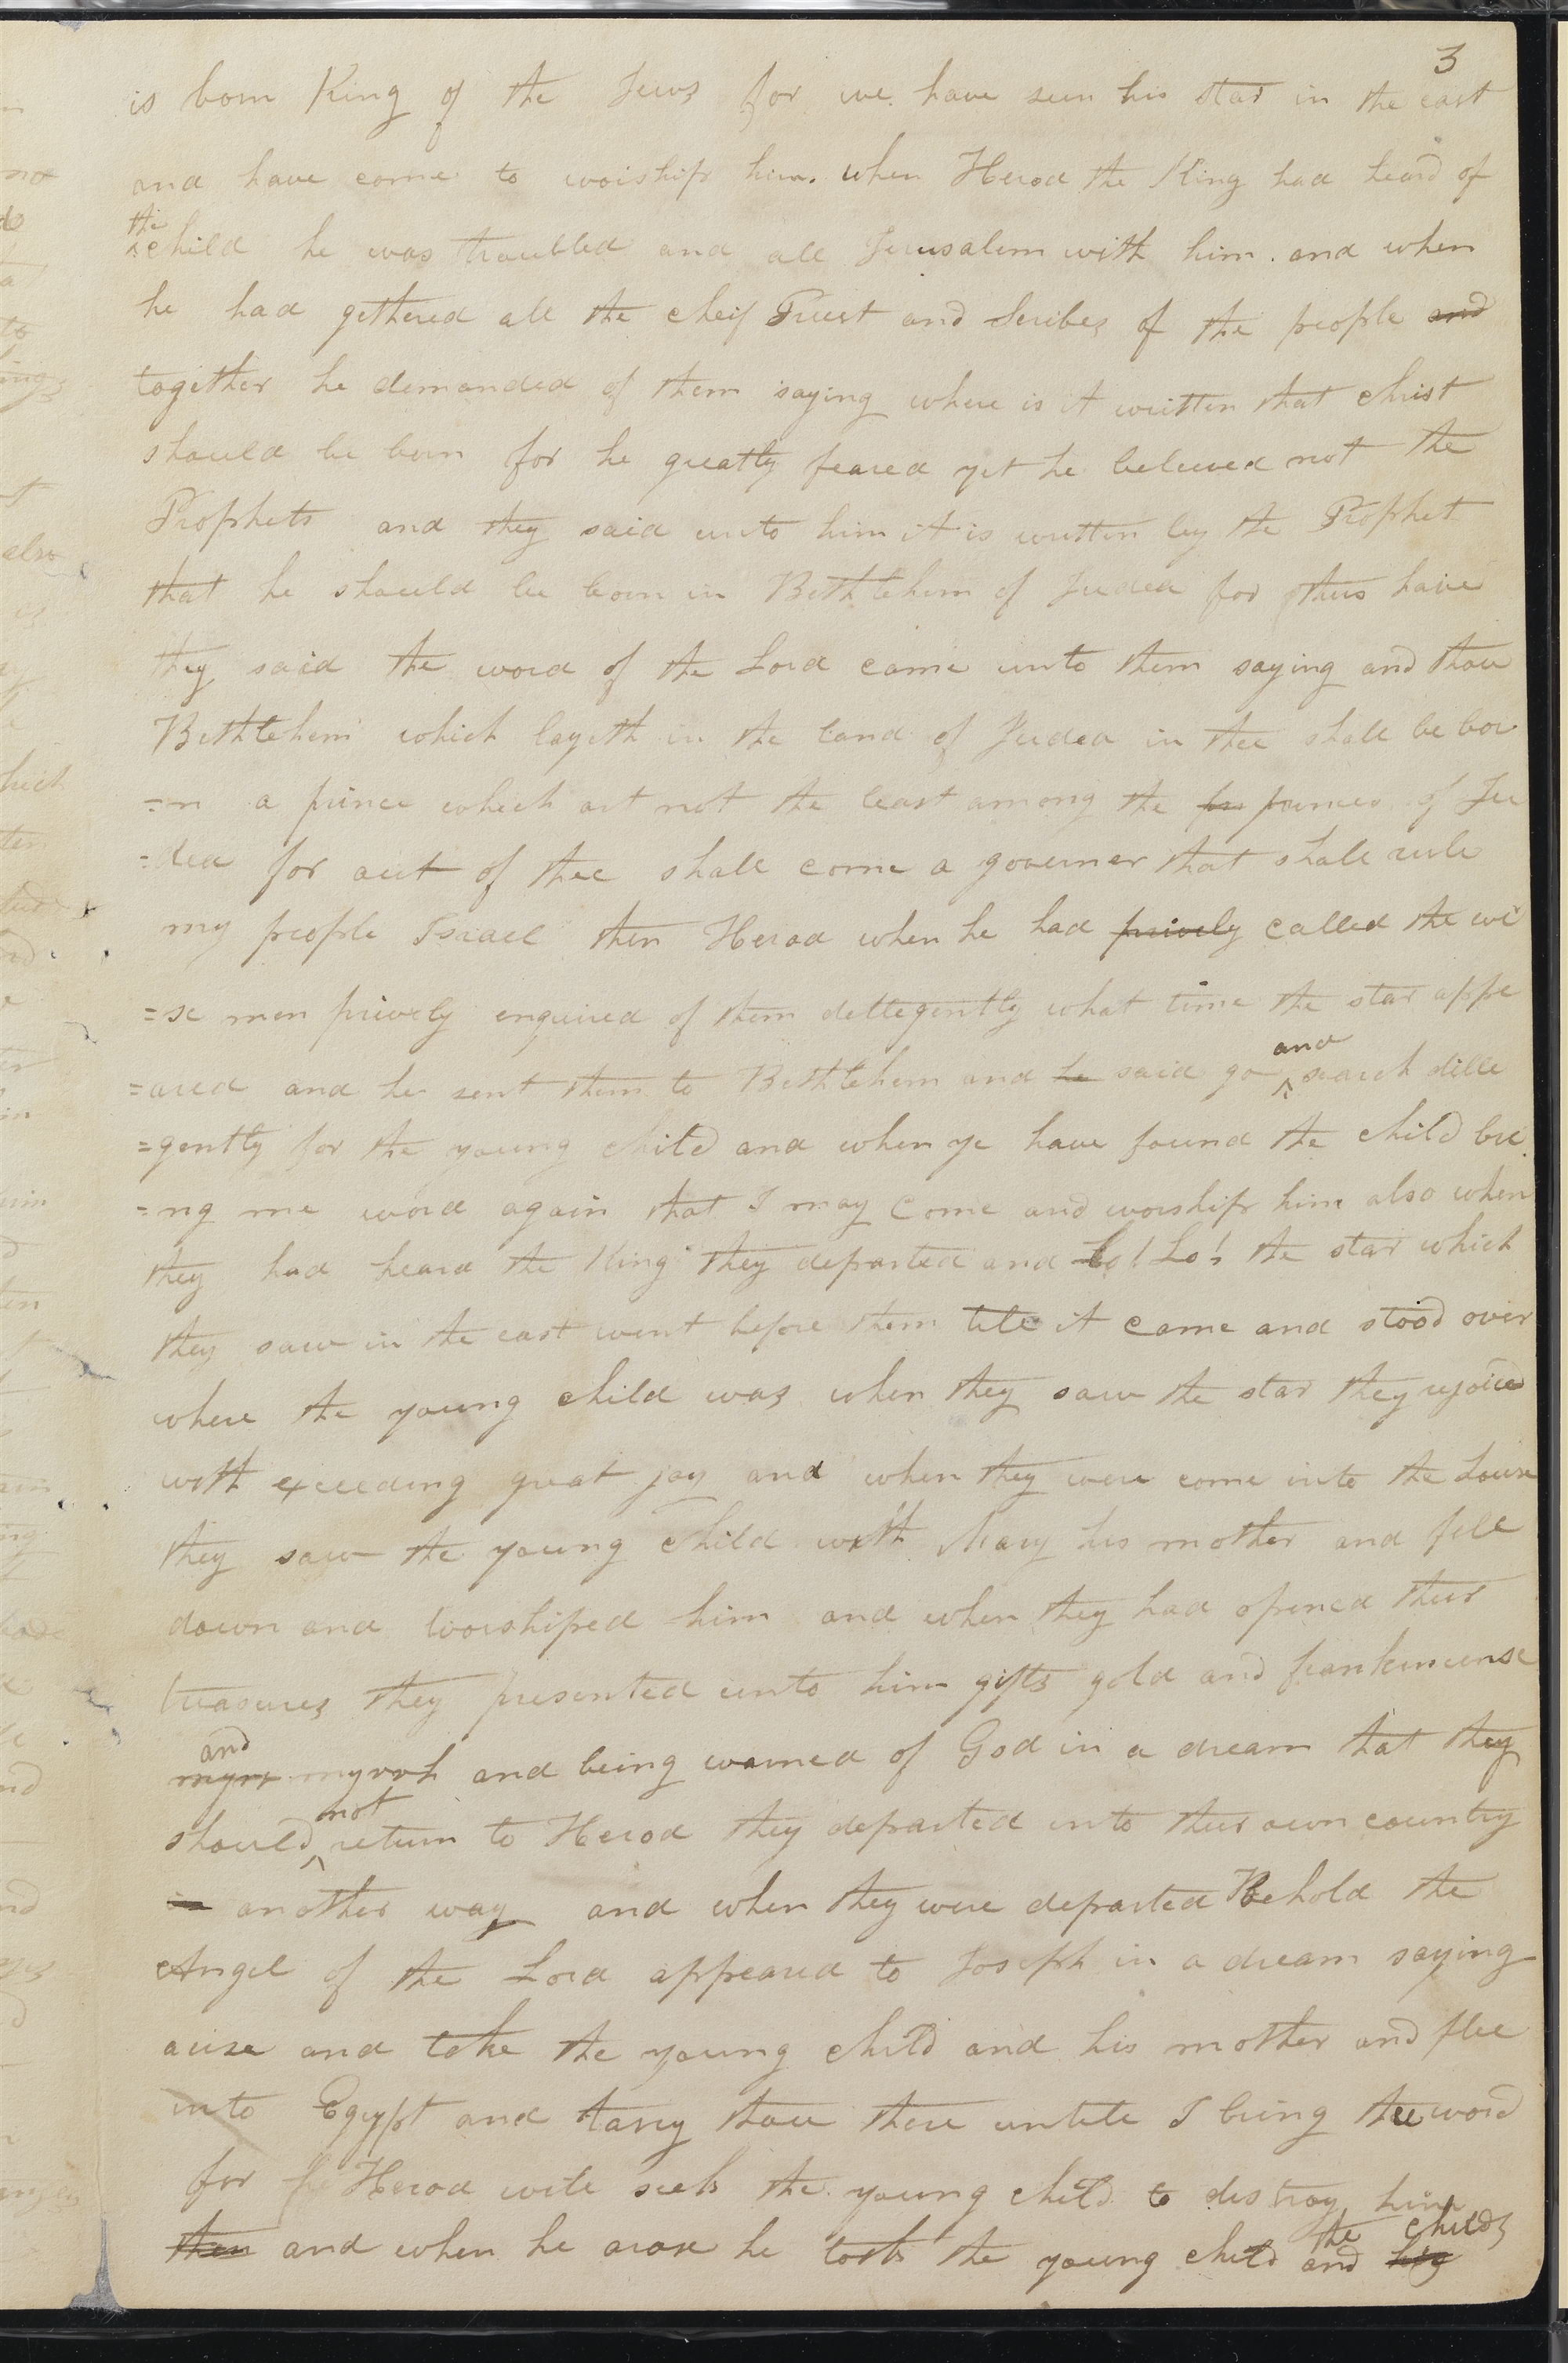 3
is born King of the Jews for we have seen his star in the east
and have come to woiship him. when Herod the King had heard of
the
child he was troubled and all Jerusalem with him. and when
he had gethered all the cheif Priest and Scribes of the people and
together he demanded of them saying where is it written that christ
should be born for he greatly feared yet he beleived not the
Prophets and they said unto him it is written by the Prophet
that he should be born in Bethlehem of Judea for thus have
they said the word of the Lord came unto them saying and thou
Bethlehem which layeth in the land of Judea in thee shall be bor
=n a prince which art not the least among the pr princes of Ju
=dea for out of thee shall come a governer that shall rule
my people Israel then Herod when he had prively called the wi
=se men prively enquired of them dellegently what time the star appe
=ared and he sent them to Bethlehem and he said go ^ search dille
and
=gently for the young child and when ye have found the child bri
=ng me word again that I may come and worship him also when
they had heard the King they departed and Lo! Lo! the star which
they saw in the east went before them till it came and stood over
where the young child was when they saw the star they rejoiced
with exceeding great joy and when they were come into the house
they saw the young child with Mary his mother and fell
down and worshiped him and when they had opened their
treasures they presented unto him gifts gold and frankincense
and
myrr myrrh and being warned of God in a dream that they
not
should ^ return to Herod they departed into their own country
another way and when they were departed Behold the
Angel of the Lord appeared to Joseph in a dream saying
arise and take the young child and his mother and flee
into Egypt and tarry thou there untill I bring thee word
for Herod will seek the young child to destroy him
the childs
then and when he arose he took the young child and his